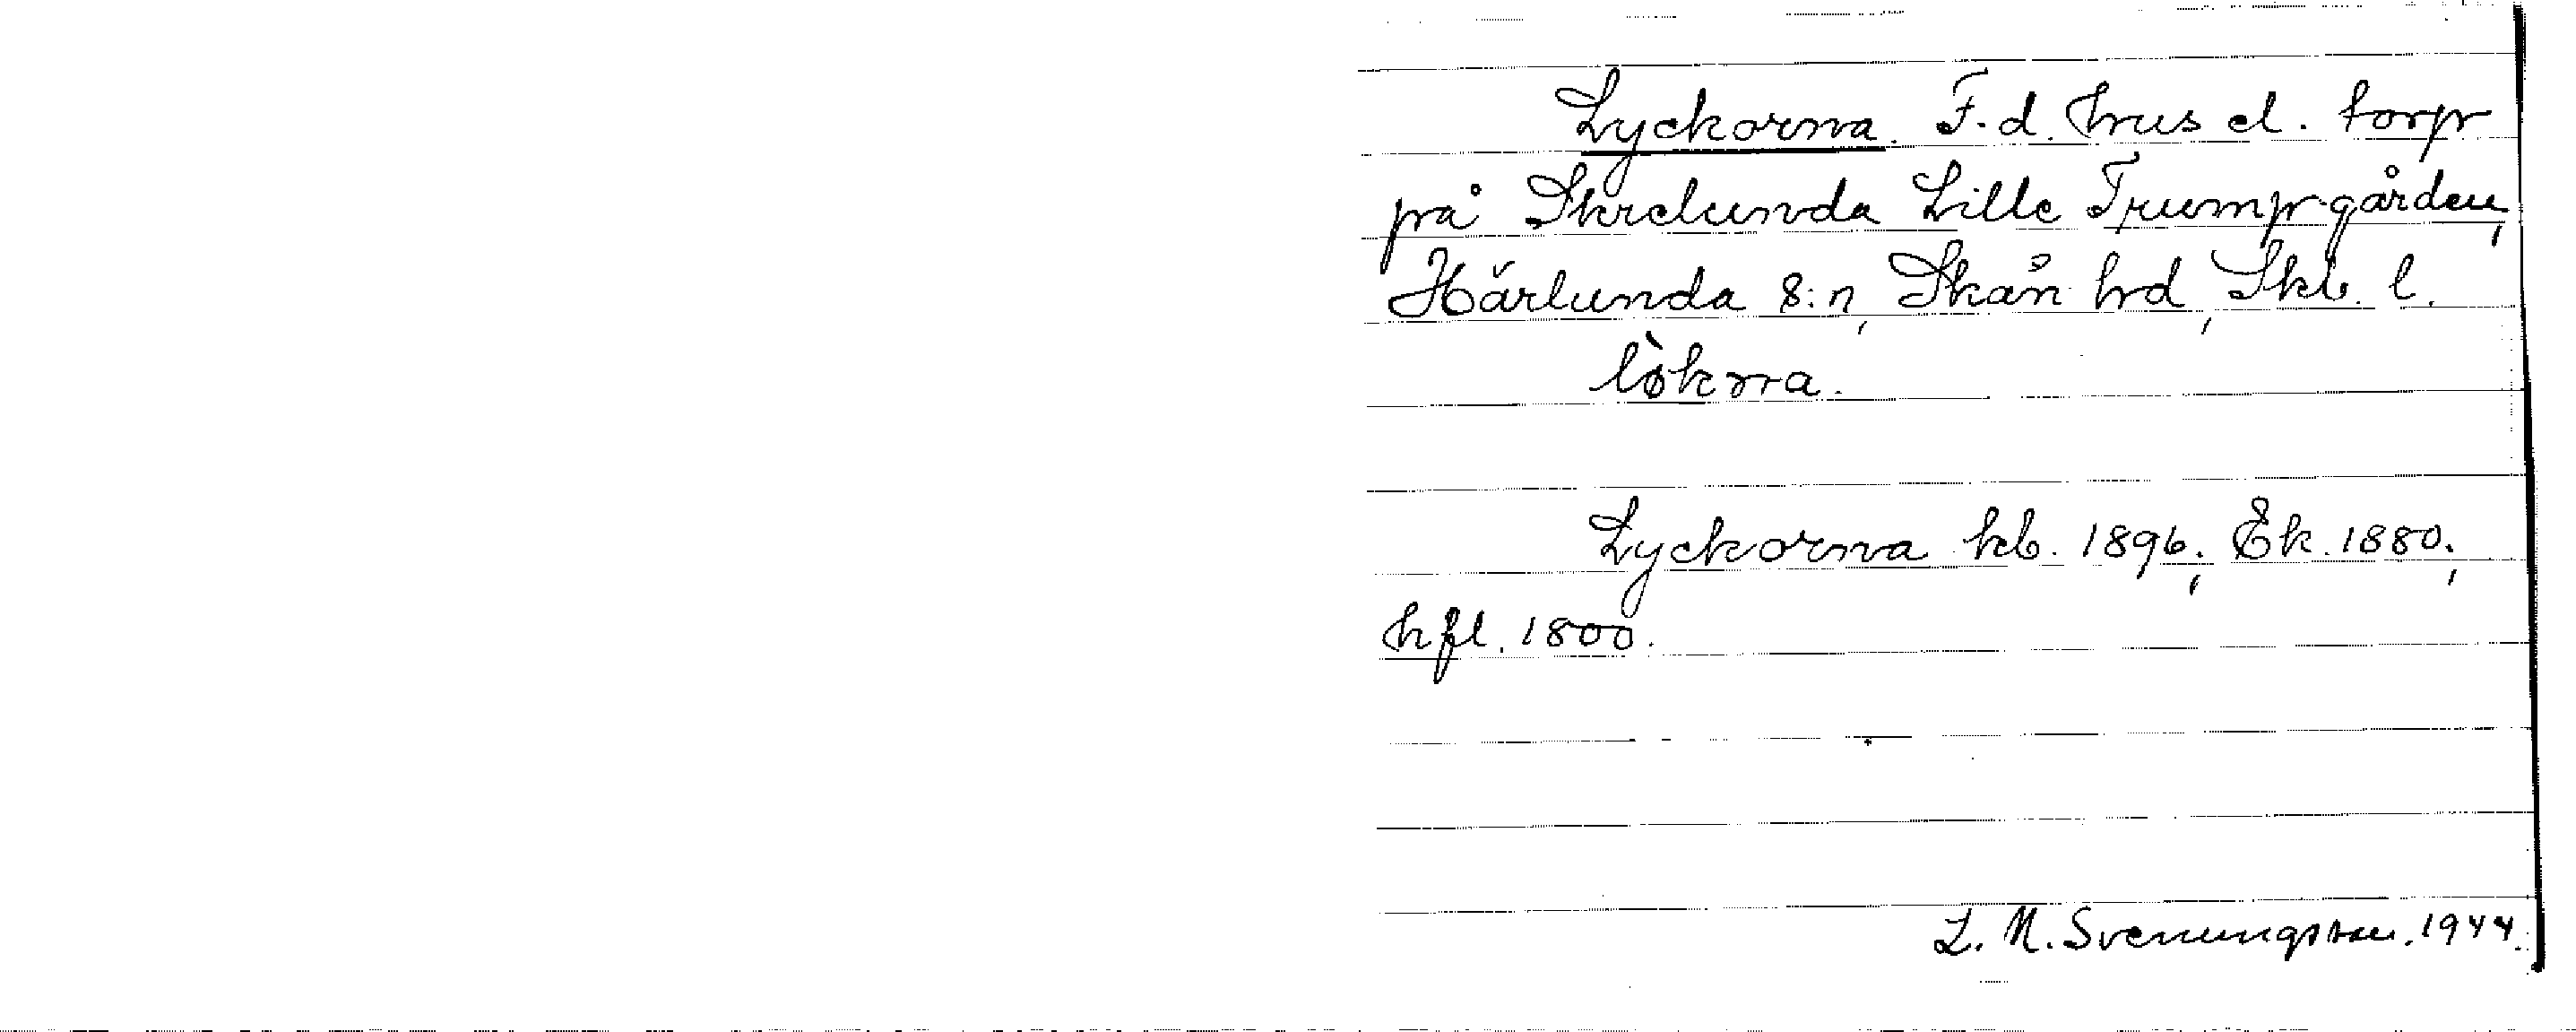 Lyckorna. F.d. hus el. torp
på Skrelunda Lille Trumpgården,
Härlunda s:n, Skån hd, Skb. l.
lø̀kɤa.
Lyckorna kb. 1896; Ek. 1880;
hfl. 1800.
L. M. Svenungsson. 1944.